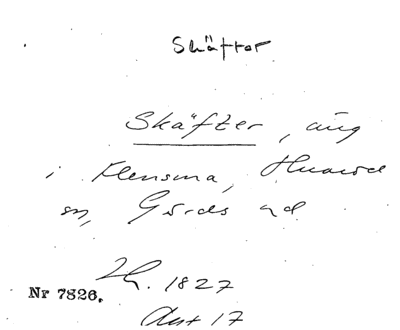 Skäftor
Skäfter, äng
i Flensma, Huaröd
sn, Gärds hd
LR. 1827
Nr 7826.
Akt 17